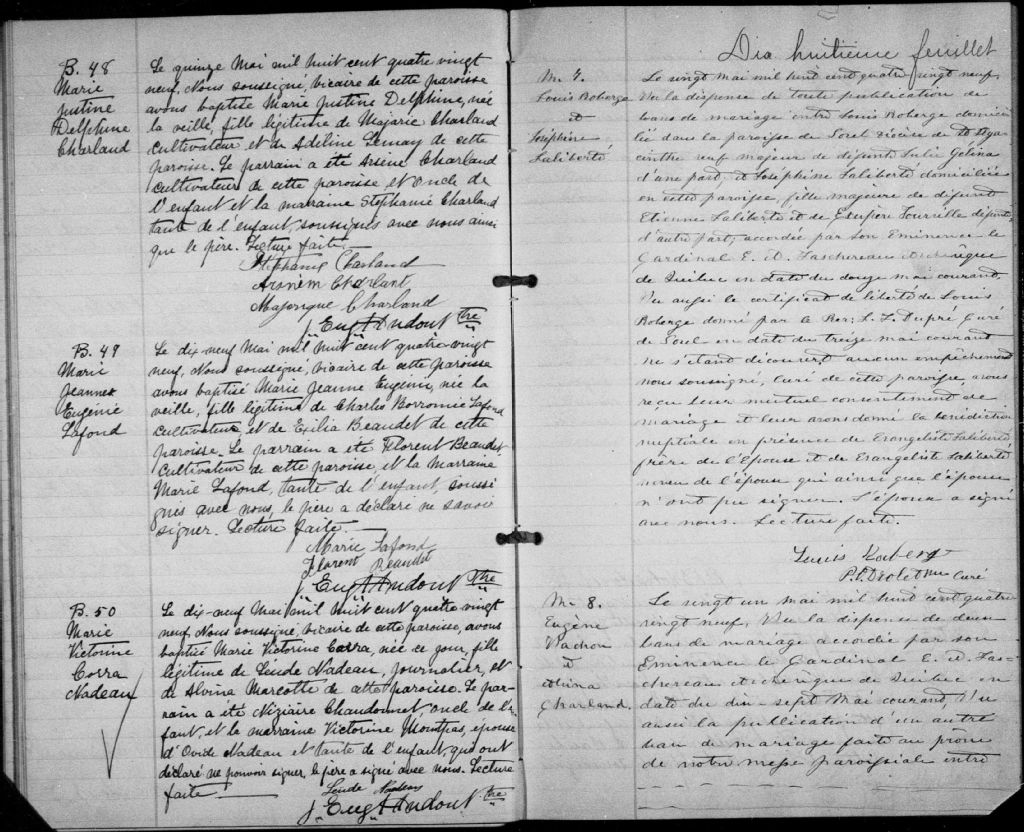 B. 48
Marie
Justine
Delphine
Charland
Le quinze Mai mil huit cent quatre vingt
neuf, Nous soussigné, vicaire de cette paroisse
avons baptisé Marie Justine Delphine, née
la veille, fille légitime de Majoric Charland
cultivateur et de Adeline Lemay de cette
paroisse. Le parrain a été Arsène Charland
cultivateur de cette paroisse et oncle de
l'enfant et la marraine Stephanie Charland
tante de l'enfant, soussignés avec nous ainsi
que le père. Lecture faite.—
Stephanie Charland
Charland
Majorique Charland
J. Eug. Audout Ptre
B. 49
Marie
Jeanne
Eugénie
Lafond
Le dix-neuf Mai mil huit cent quatre-vingt
neuf, Nous soussigné, vicaire de cette paroisse
avons baptisé Marie Jeanne Eugénie, née la
veille, fille légitime de Charles Borromée Lafond
cultivateur et de Exilia Beaudet de cette
paroisse. Le parrain a été Florent Beaudet
cultivateur de cette paroisse, et la Marraine
Marie Lafond, tante de l'enfant, soussi
gnés avec nous, le père a déclaré ne savoir
signer. Lecture faite.—
Marie Lafond
Florent Beaudet
J. Eug. Audout Ptre
B. 50
Marie
Victorine
Corra
Nadeau
Le dix-neuf Mai mil huit cent quatre vingt
neuf, Nous soussigné, vicaire de cette paroisse, avons
baptisé Marie Victorine Corra, née ce jour, fille
légitime de Léude Nadeau, journalier, et
de Alvina Marcotte de cette paroisse. Le par-
rain a été Niziaire Chandonnet oncle de l'en
fant, et la marraine Victorine Montpas, épouse
d'Onide Nadeau et tante de l'enfant, qui ont
déclaré ne pouvoir signer, le père a signé avec nous. Lecture
faite —
Léude Nadeau
J. Eug. Audout Ptre
Dix huitième feuillet
M. 7.
Louis Roberge
&
Joséphine
Laliberté
Le vingt mai mil huit cent quatre vingt neuf,
Vu la dispense de toute publication de
bans de mariage entre Louis Roberge domici
lié dans la paroisse de Sorel Diocèse de St Hyacinthe
veuf majeur de défunte Julie Gélina
d'une part; et Joséphine Laliberté domiciliée
en cette paroisse, fille majeure de défunt
Etienne Laliberté et de Tourville défunte
d'autre part; accordée par Son Eminence le
Cardinal E. A. Taschereau Archevêque
de Québec en date du douze mai courant,
Vu aussi le certificat de liberté de Louis
Roberge donné par le Rev. L. L. Dupré Curé
de Sorel en date du treize mai courant
ne s'étant découvert aucun empêchement
nous soussigné, Curé de cette paroisse, avons
reçu leur mutuel consentement de
mariage et leur avons donné la bénédiction
nuptiale en présence de Evangeliste Laliberté
frère de l'Epouse et de Evangeliste Laliberté
neveu de l'épouse qui ainsi que l'épouse
n'ont pu signer. L'époux a signé
avec nous. Lecture faite.
Louis Roberge
P. O. Drolet Ptre Curé
M. 8.
Eugène
Vachon
&
Alvina
Charland
Le vingt un mai mil huit cent quatre
vingt neuf, Vu la dispense de deux
bans de mariage accordée par son
Eminence le Cardinal E. A. Tas-
chereau archevêque de Québec en
date du dix-sept Mai courant, Vu
aussi la publication d'un autre
ban de mariage faite au prône
de notre messe paroissiale entre